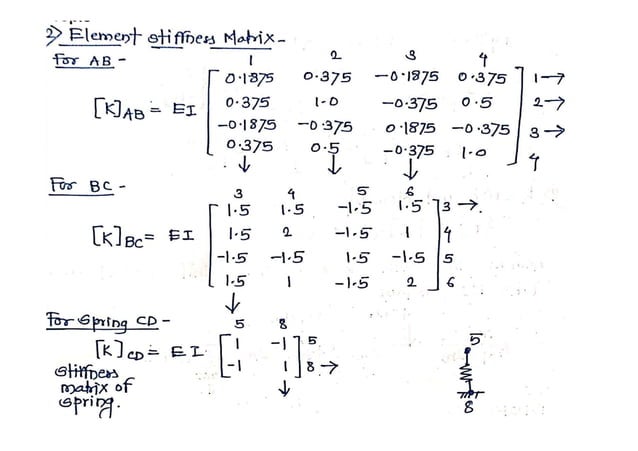 2) Element stiffness Matrix-
For AB -
1 2 3 4
0.1875 0.375 -0.1875 0.375 1→
[K]AB = EI 0.375 1.0 -0.375 0.5 2→
-0.1875 -0.375 0.1875 -0.375 3→
0.375 0.5 -0.375 1.0 4
↓ ↓ ↓
For BC -
3 4 5 6
1.5 1.5 -1.5 1.5 3→.
[K]BC= EI 1.5 2 -1.5 1 4
-1.5 -1.5 1.5 -1.5 5
1.5 1 -1.5 2 6
↓
For Spring CD -
5 8
[K]CD = EI. 1 -1 5
-1 1 8→
↓
stiffness
matrix of
spring.
5
8